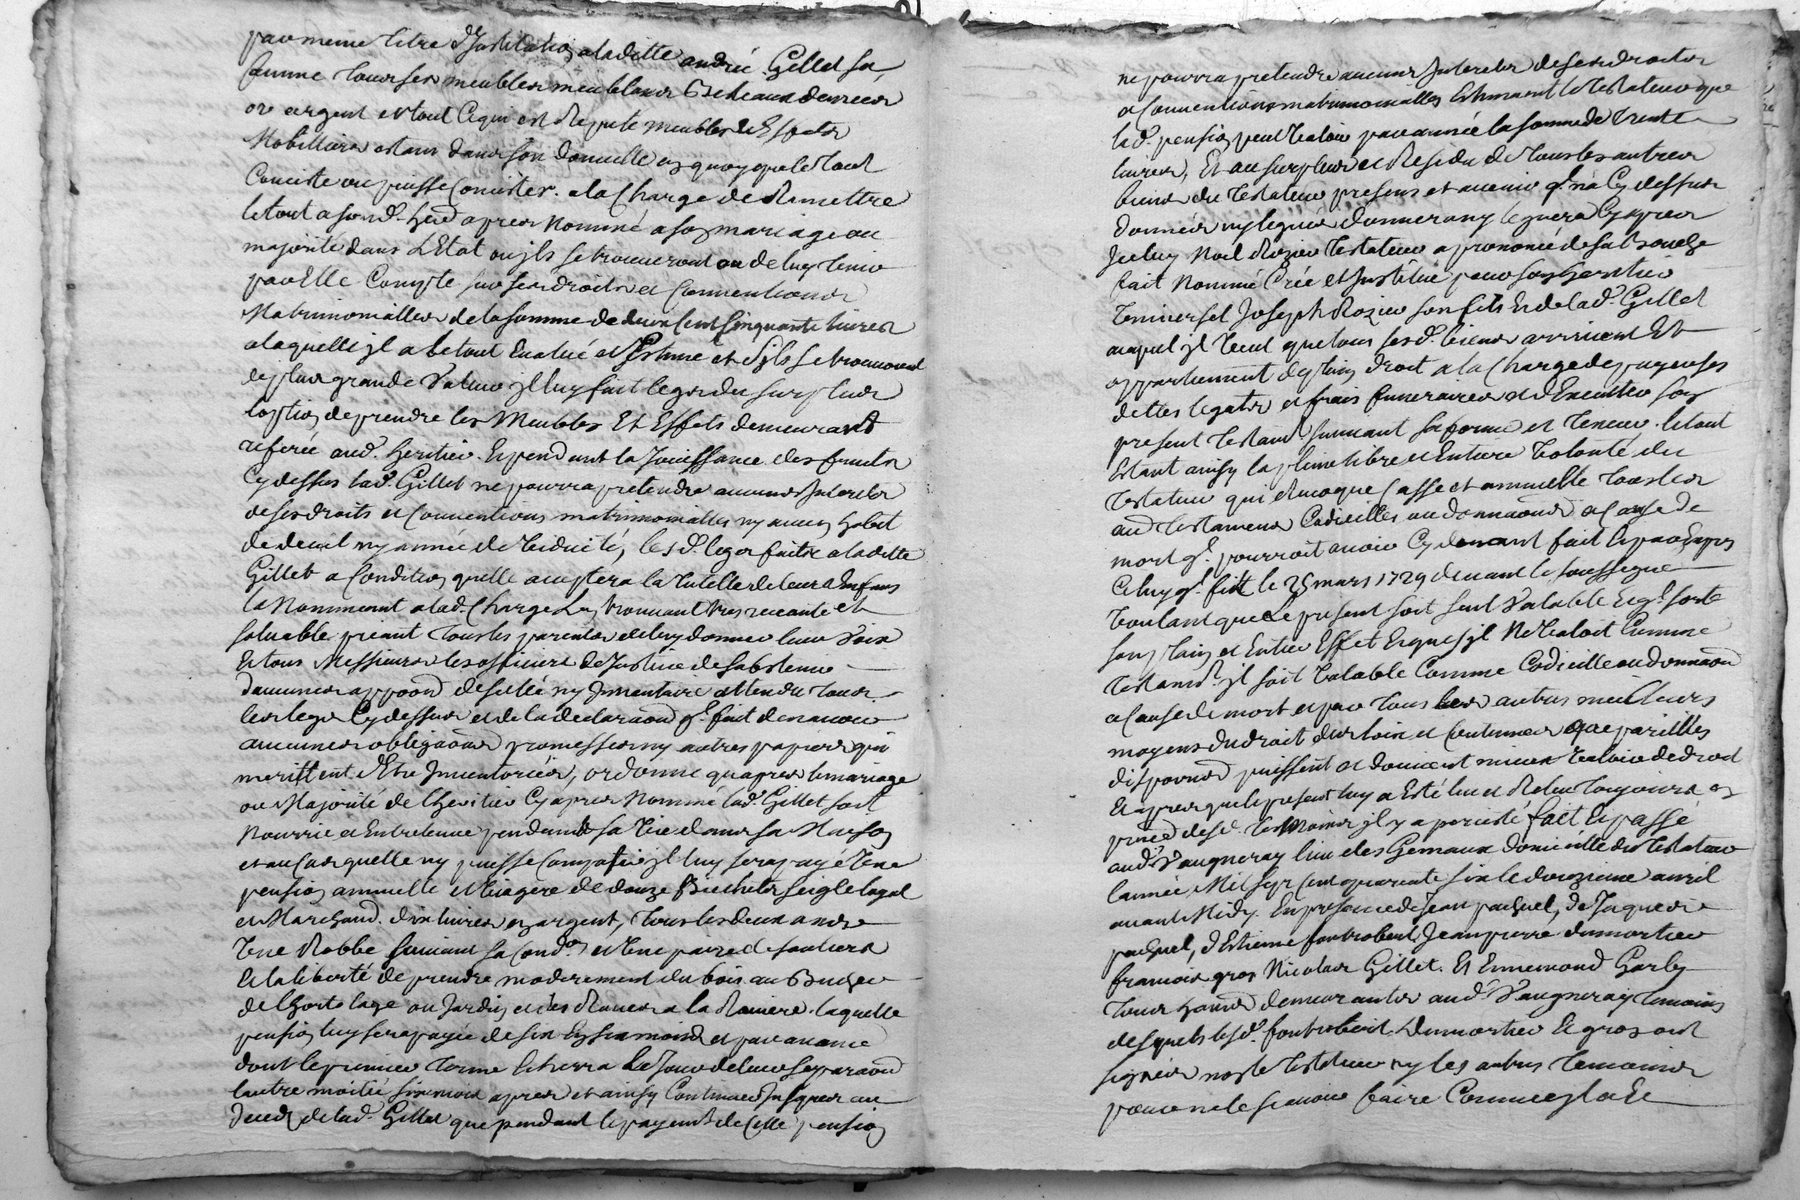 par meme titre d'Institution a laditte andrée Gillet sa
femme tous ses meubles meublans Bestiaux denrees
or argent et tout Ce qui est Repute meubles et Effets
Mobilliers estans dans son domicille en quoy que le tout
Conciste ou puisse Concister. a la Charge de Remettre
le tout a sond. herit apres nommé a son mariage ou
majorité dans L'Etat ou jls se trouveront ou de luy tenir
par Elle Compte sur ses droits et Conventions
Matrimonialles de la somme de deux Cent Cinquante livres
a laquelle jl a le tout Evalué et Estimé et s'jls se trouvoient
de plus grande Valeur jl luy fait legs du surplus
loption de prendre les Meubles Et Effets demeurant
referée aud. heritier. Et pendant la Jouissance des fruits
Cy dessus lad. Gillet ne pourra pretendre aucuns Interets
de ses droits et Conventions matrimonialles ny aucun habit
de deuil ny année de Viduité, lesd. legs faits a laditte
Gillet a Condition quelle aceptera la tutelle de leurs Enfans
la Nommant a lad. Charge La trouvant tres receante et
solvable priant tous les parents de luy donner leur Voix
Et tous Messieurs les officiers de Justice de sabstenir
daucunes appoon de scellé ny Inventaire attendu tous
les legs Cy dessus et de la declaraon q'l fait de navoir
aucunes obligaons promesses ny autres papiers qui
merittent d'Etre Inventoriés, ordonne quapres le mariage
ou Majorité de lheritier Cy apres Nommé lad. Gillet soit
Nourrie et Entretenue pendant sa Vie dans sa Maison
et au Cas quelle ny puisse Compatir jl luy sera payé Une
pension annuelle et Viagere de douze Bichets seigle loyal
et Marchand. dix livres en argent, tous les deux ans
Une Robbe suivant sa Condon et Une paire de souliers
Et la liberté de prendre moderement du bois au Bucher
de lhortolage au Jardin et des Raves a la Raviere. laquelle
pension luy sera payée de six En six mois et par avance
dont le premier terme Echerra Le Jour de leur separaon
lautre moitié six mois apres et ainsy Continuer Jusques au
deces de lad. Gillet que pendant le payemt de Cette pension
ne pourra pretendre aucuns Interets de ses droits
et Conventions matrimonialles Estimant le testateur que
lad. pension peut Valoir par année la somme de trente
livres, Et au surplus et Residu de tous les autres
biens du testateur presens et avenir q'l na Cy dessus
donnés ny legués donnera ny leguera Cy apres
Iceluy Noël Rozier testateur a prononcé de sa bouche
fait Nommé Créé et Institué pour son heritier
Universel Joseph Rozier son fils Et de lad. Gillet
auquel jl Veut que tous sesd. biens arrivent Et
appartiennent de plein droit a la Charge de payer ses
dettes legats et frais funeraires et d'Executer son
present testamt suivant sa forme et teneur. le tout
Estant ainsy la pleine libre et Entiere Volonté du
testateur qui Revoque Casse et annulle tous les
autres testamens Codicilles ou donnaons a Cause de
mort q'l pourroit avoir Cy devant fait Et par Expres
Celuy q'l fit le 25 mars 1729 devant le soussigné
Voulant que Le present soit seul Valable Et q'l sorte
son plain et Entier Effet Et que s'jl Ne Valoit Comme
testamt. jl soit Valable Comme Codicille ou donnaon
a Cause de mort et par tous les autres meilleurs
moyens du droit d'us loix et Coutumes que pareilles
disposons puissent et doivent mieux Valoir de droit
Et apres que le present luy a Esté lu et Relu toujours en
presce desd. tesmoins jl y a percisté fait Et passé
aud. Vaugneray lieu des Gemaux domicille du testateur
lannée Mil sept Cent quarante six le douzieme avril
avant Midy. En presence de Jean pasquel, de Jaques
pasquel, d'Estienne fontrobert, Jean pierre dumortier
francois gros Nicolas Gillet. Et Ennemond Garby
tous habns demeurants aud. Vaugneray temoins
desquels lesd. fontrobert dumortier Et gros ont
signés non le testateur ny les autres temoins
pour ne le scavoir faire Comme